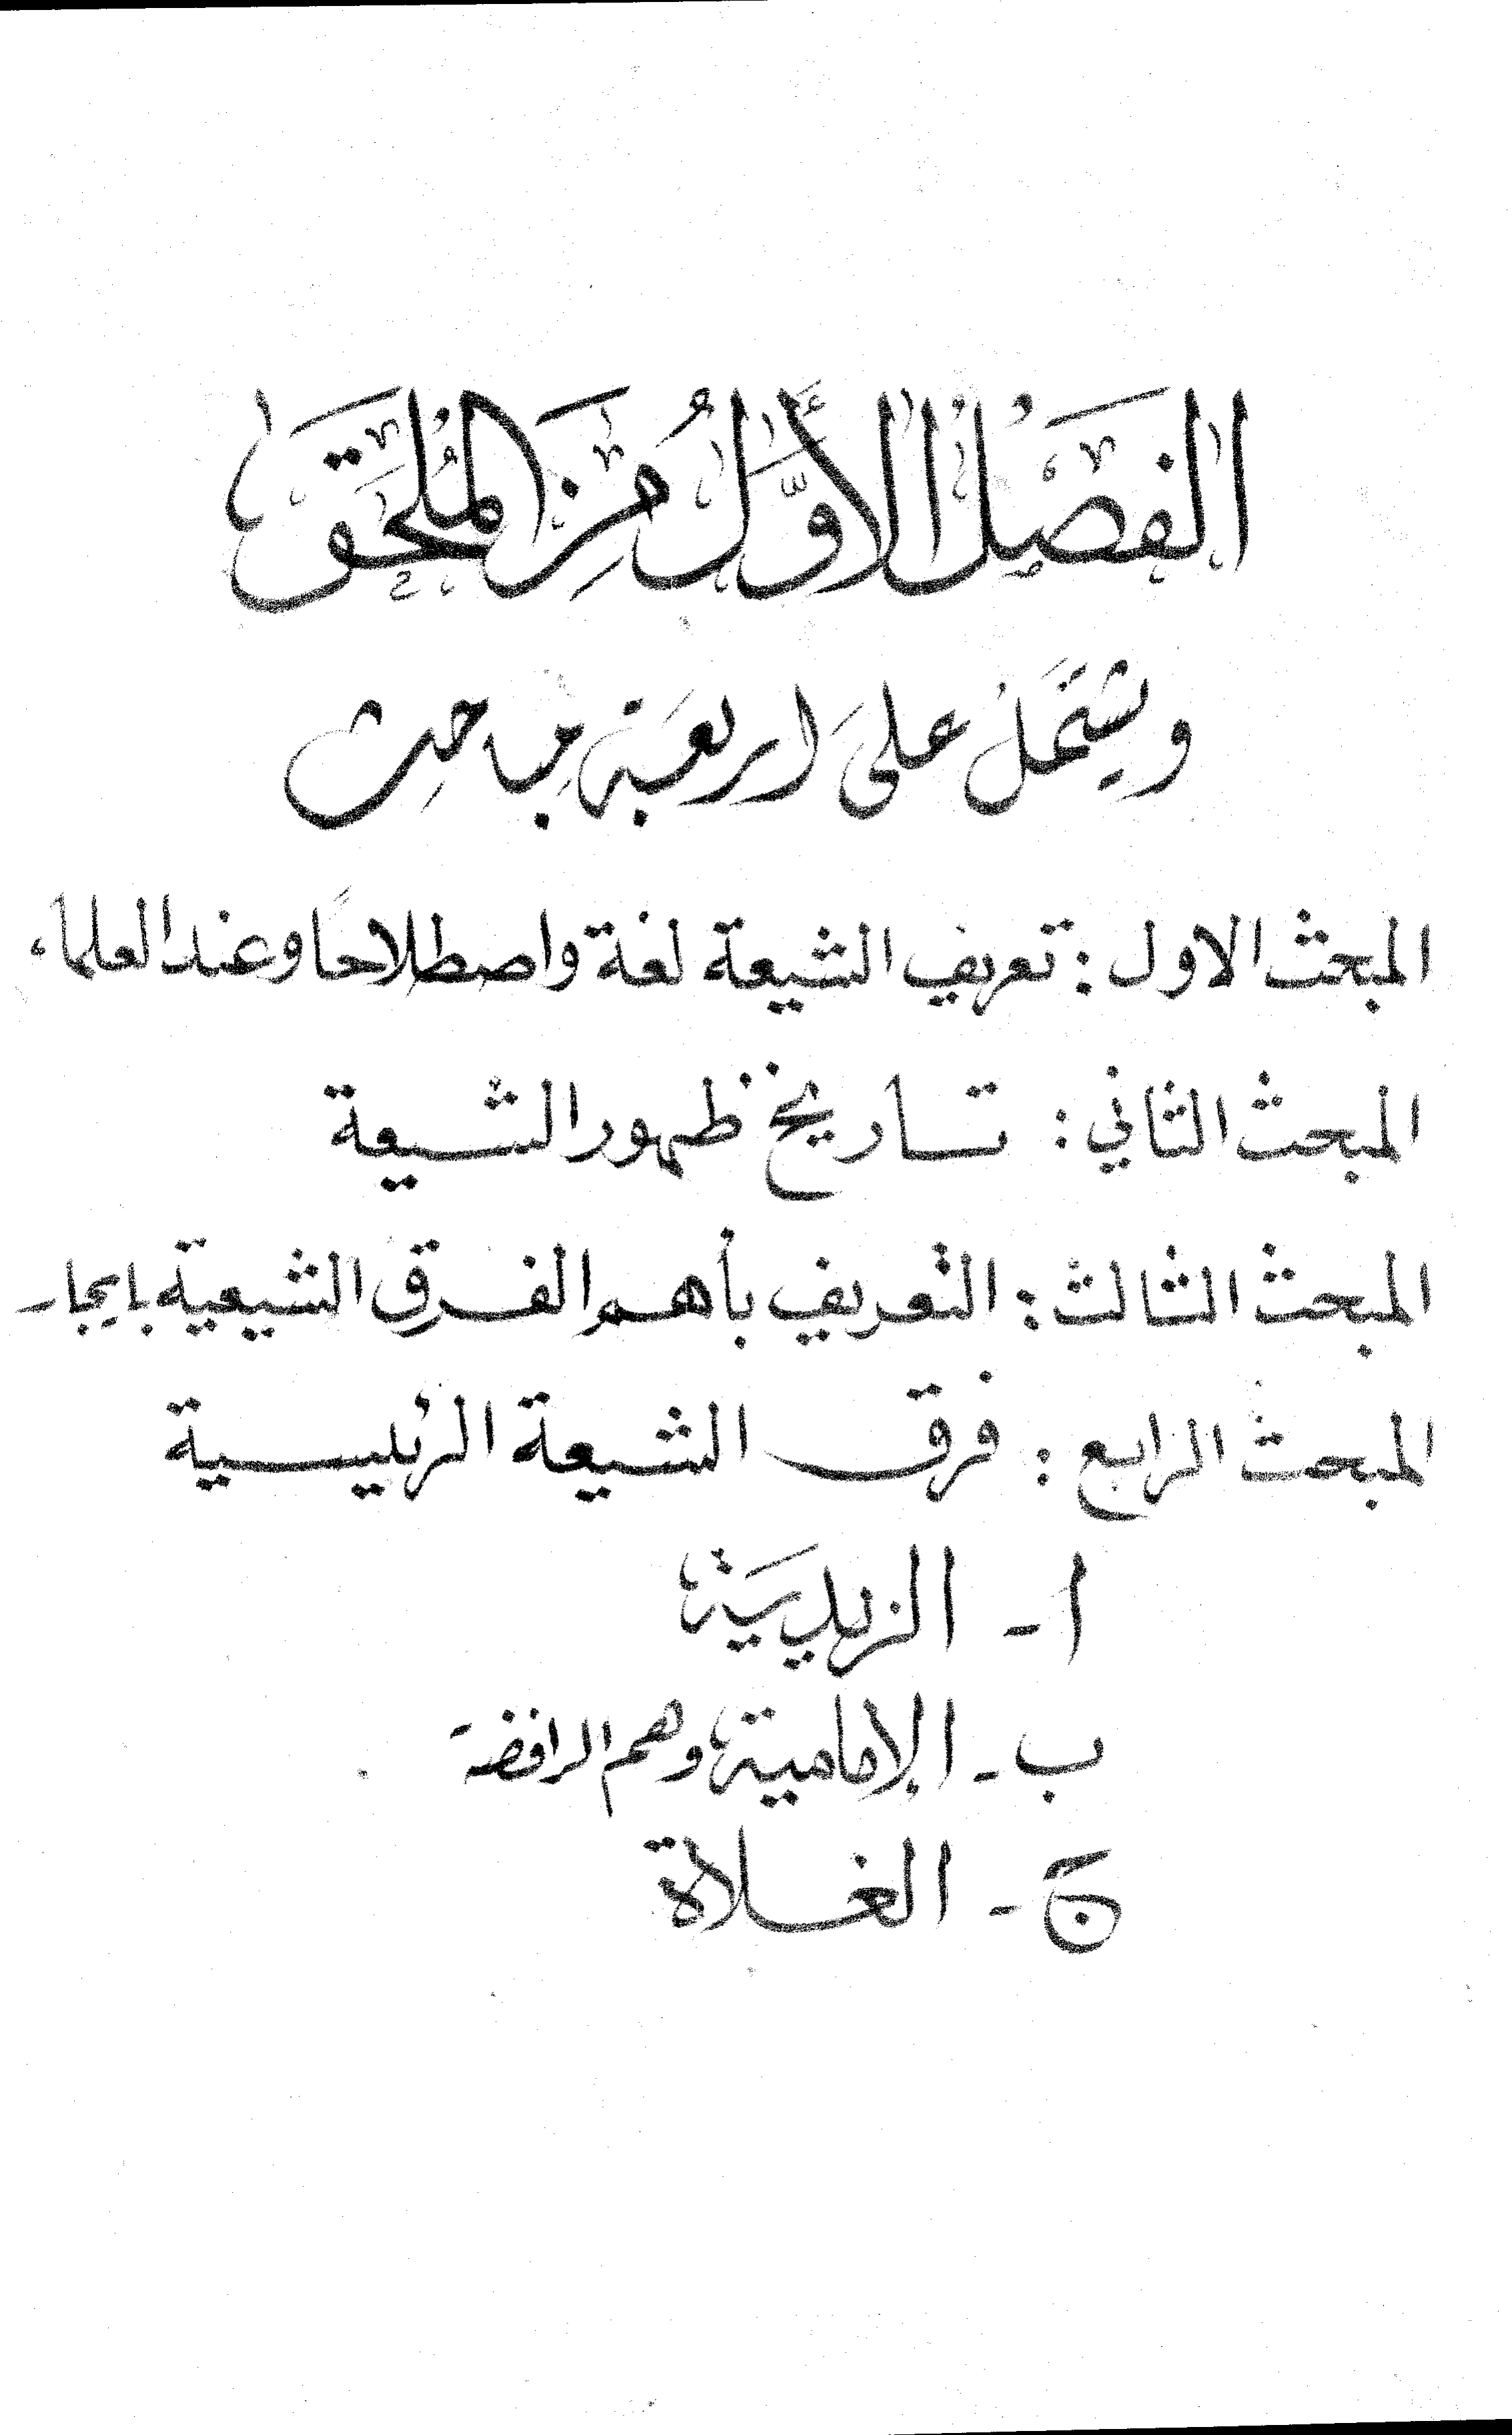 الفصل الأوّل من الملحق
ويشتمل على اربعة مباحث
المبحث الاول: تعريف الشيعة لغة واصطلاحًا وعند العلماء
المبحث الثاني: تاريخ ظهور الشيعة
المبحث الثالث: التعريف بأهم الفرق الشيعية بايجاز
المبحث الرابع: فرق الشيعة الرئيسية
ا - الزيدية
ب - الإمامية وهم الرافضة
ج - الغلاة